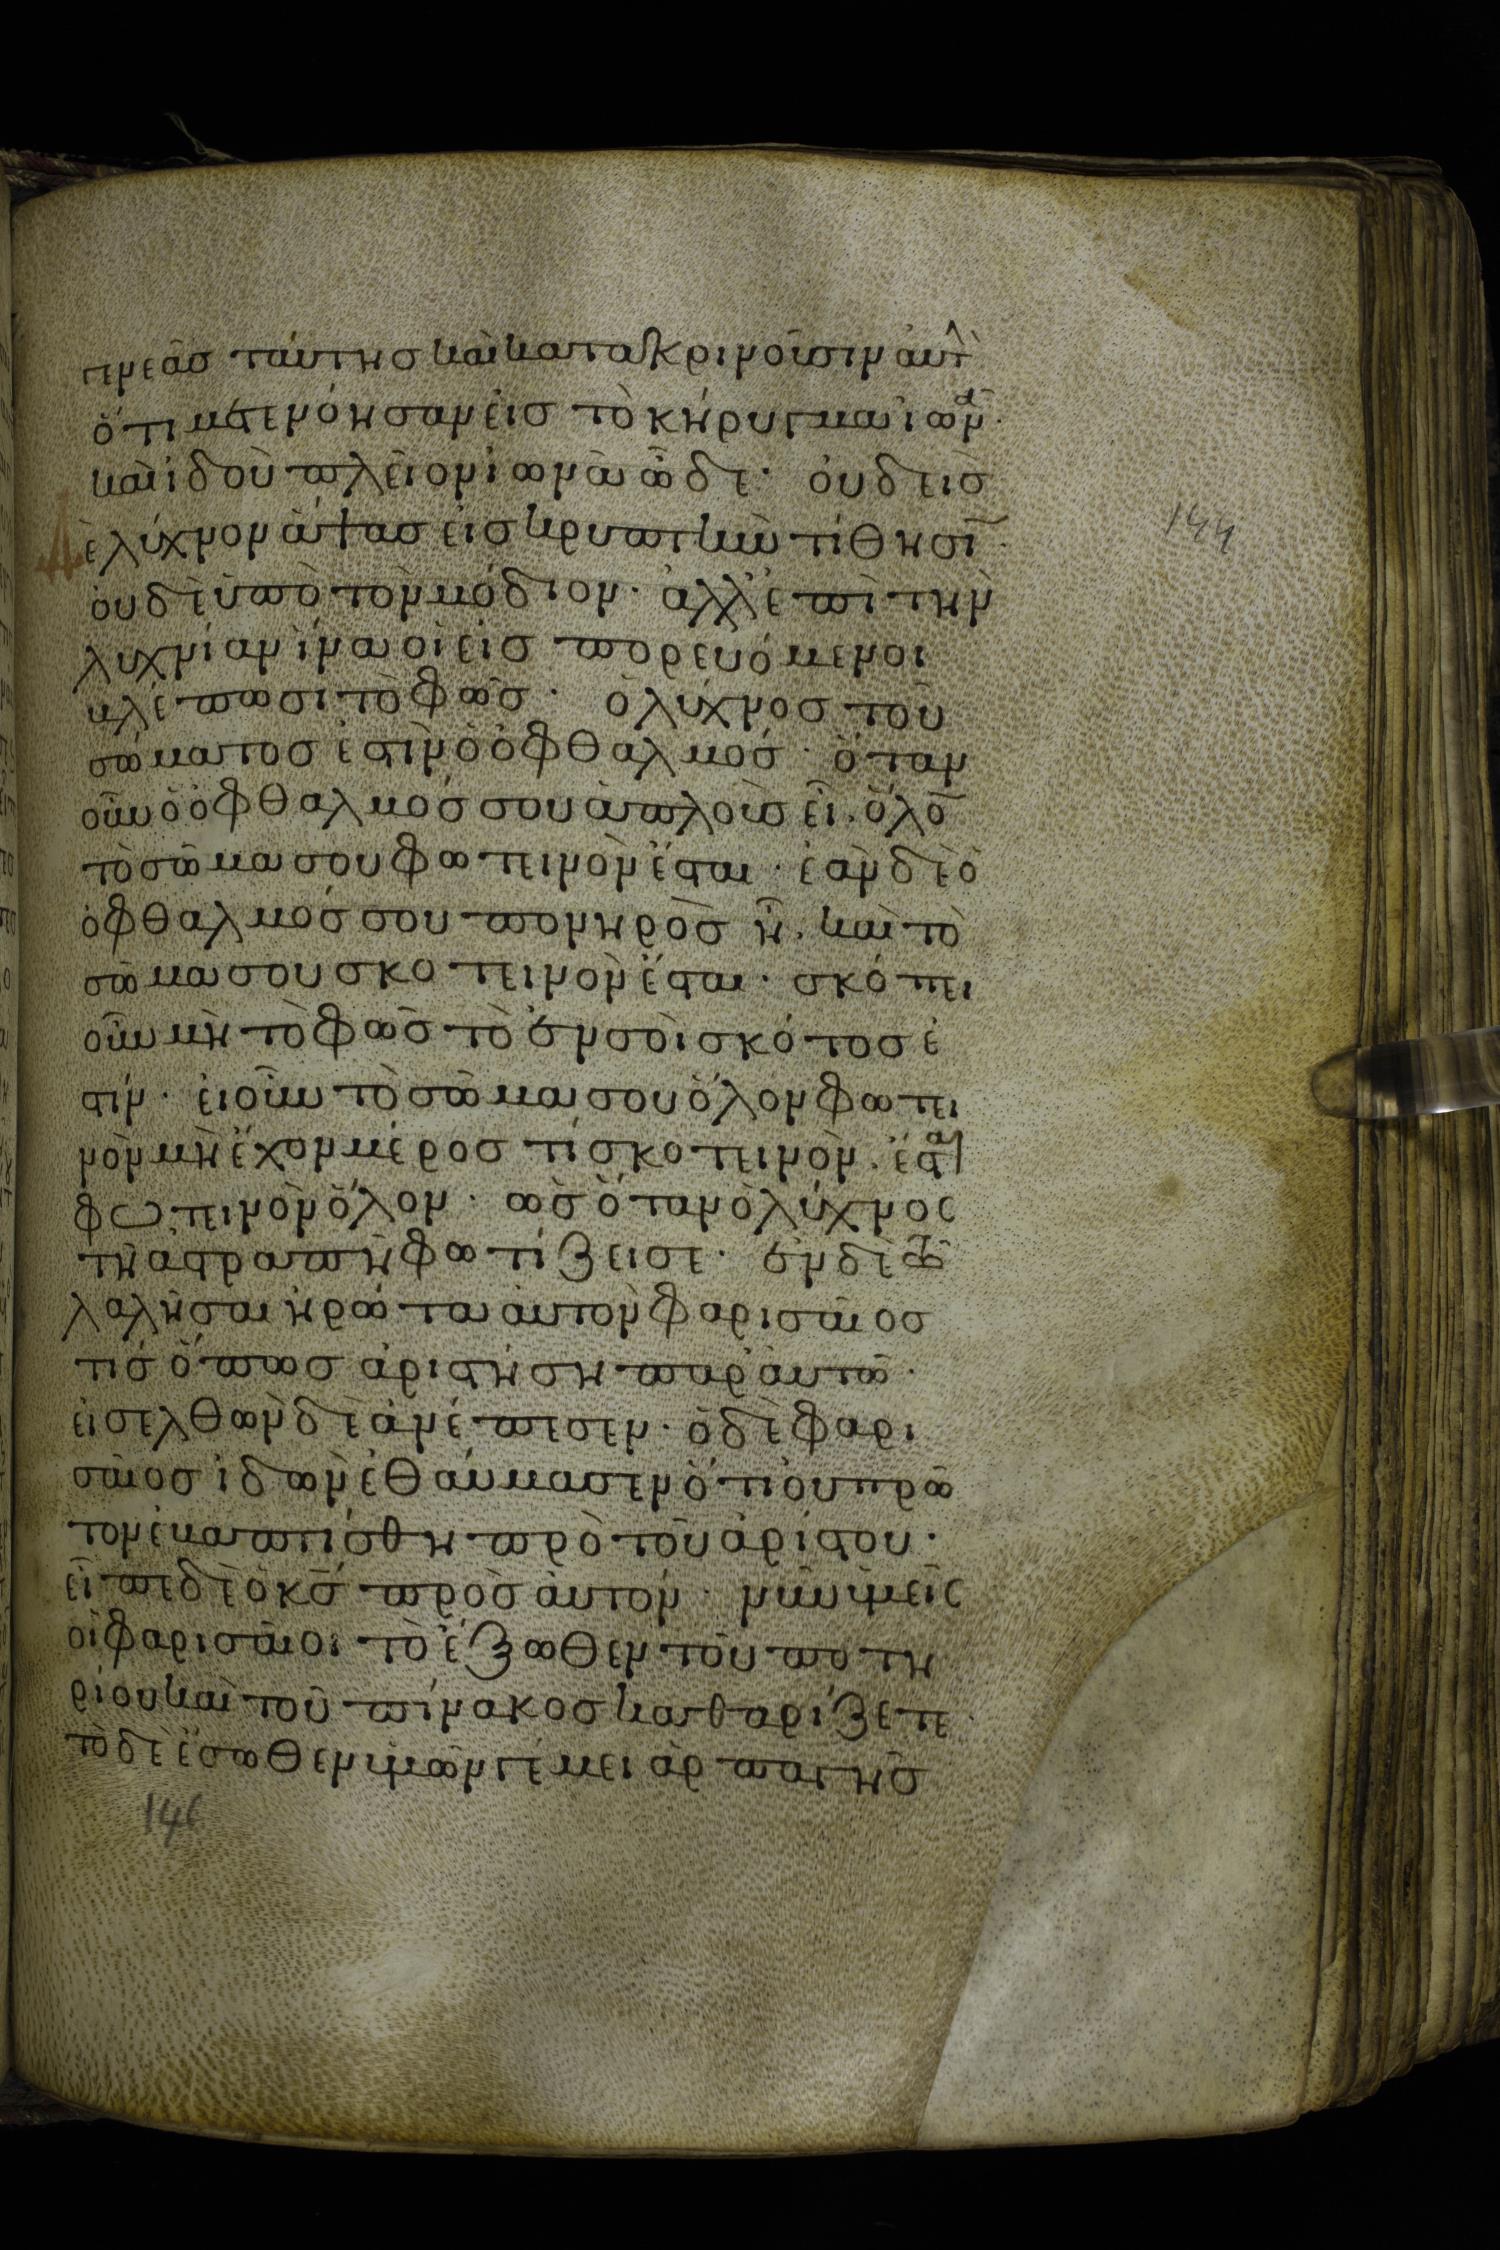 γενεᾶσ ταύτησ καὶ κατακρινοῦσιν αὐτὴ
ὅτι μετενόησαν εἰσ τὸ κήρυγμα ἰωνᾶ·
καὶ ἰδοὺ πλεῖον ἰωνᾶ ὧδε· οὐδεὶσ
δὲ λύχνον ἅψασ εἰσ κρυπτὴν τίθησῑ·
οὐδὲ ὑπὸ τὸν μόδιον· ἀλλ' ἐπὶ τὴν
λυχνίαν ἵνα οἱ εἰσπορευόμενοι
βλέπωσι τὸ φῶσ· ὁ λύχνοσ τοῦ
σώματοσ ἐστὶν ὁ ὀφθαλμόσ· ὅταν
οὖν ὁ ὀφθαλμόσ σου ἁπλοῦσ εἶ· ὅλο̄
τὸ σῶμα σου φωτεινὸν ἔσται· ἐὰν δὲ ὁ
ὀφθαλμόσ σου πονηρὸσ ἦ· καὶ τὸ
σῶμα σου σκοτεινὸν ἔσται· σκόπει
οὖν μὴ τὸ φῶσ τὸ ἐν σοὶ σκότοσ ἐ
στίν· εἰ οὖν τὸ σῶμα σου ὅλον φωτει
νὸν μὴ ἔχον μέροσ τί σκοτεινὸν· ἔσται
φωτεινὸν ὅλον· ὡσ ὅταν ὁ λύχνοσ
τῆ ἀστραπῆ φωτίζει σε· ἐν δὲ τῶ
λαλῆσαι ἠρώτα αὐτὸν φαρισαῖοσ
τισ ὅπωσ ἀριστήση παρ' αὐτῶ·
εἰσελθὼν δὲ ἀνέπεσεν· ὁ δὲ φαρι
σαῖοσ ἰδὼν ἐθαύμασεν ὅτι οὐ πρῶ
τον ἐβαπτίσθη πρὸ τοῦ ἀρίστου·
εἶπε δὲ ὁ κ̄σ̄ πρὸσ αὐτόν· νῦν ὑμεῖσ
οἱ φαρισαῖοι τὸ ἔξωθεν τοῦ ποτη
ρίου καὶ τοῦ πίνακοσ καθαρίζετε·
τὸ δὲ ἔσωθεν ὑμῶν γέμει ἁρπαγῆσ
144
146